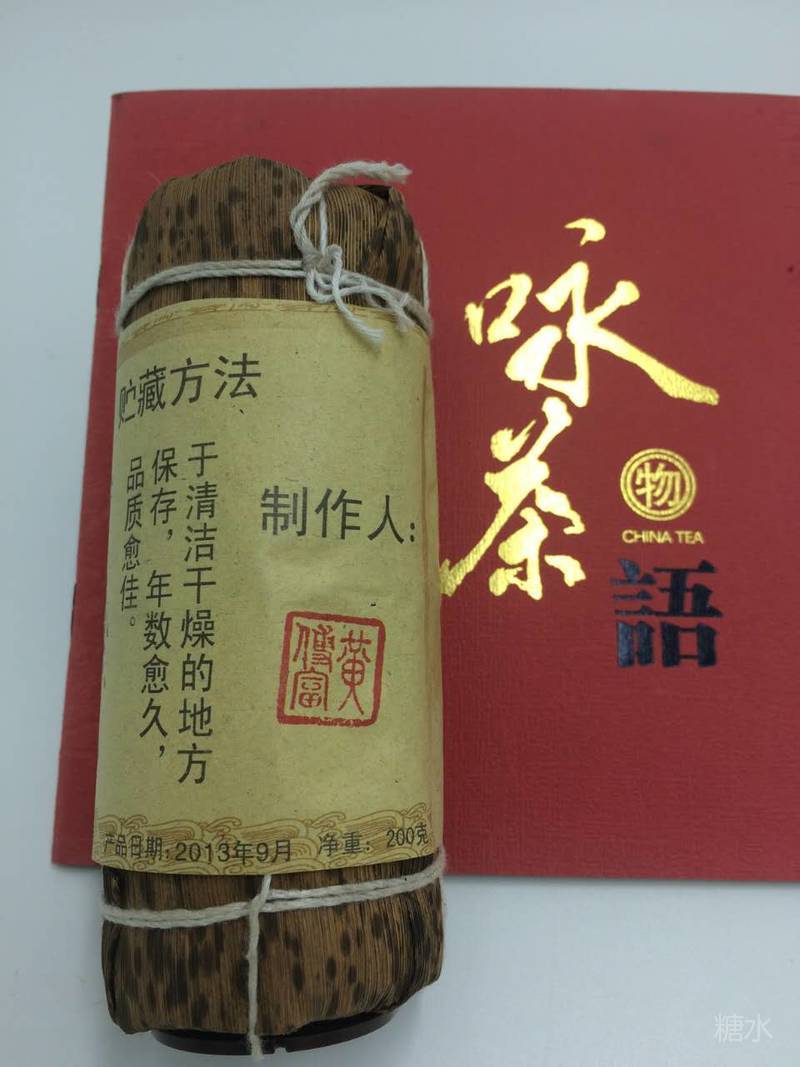 贮藏方法
于清洁干燥的地方
保存，年数愈久，
品质愈佳。
制作人：
黄
傅富
产品日期：2013年9月 净重：200克
咏茶
物
CHINA TEA
語
糖水